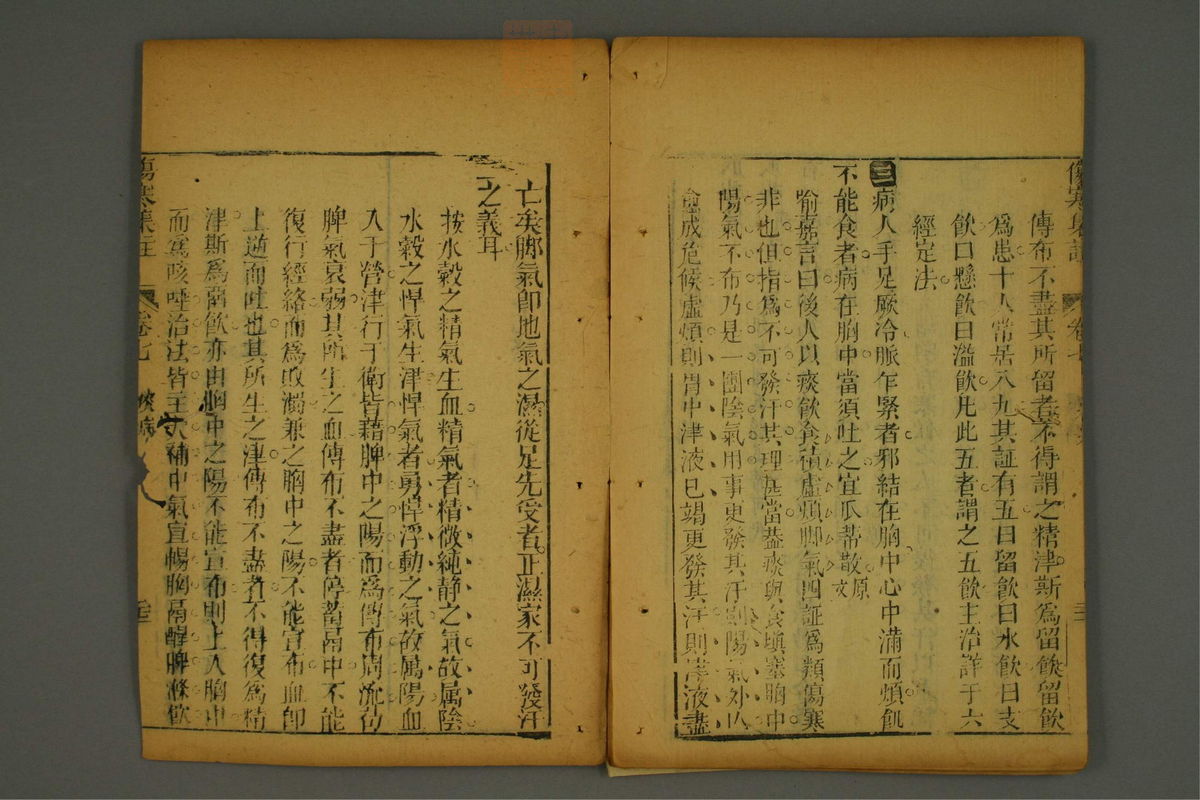 傷寒集註 卷七
傳布不盡其所留者不得謂之精津斯為留飲留飲
為患十人常居八九其証有五曰留飲曰水飲曰支
飲曰懸飲曰溢飲凡此五者謂之五飲主治詳于六
經定法
三病人手足厥冷脈乍緊者邪結在胸中心中滿而煩飢
不能食者病在胸中當須吐之宜瓜蒂散原文
喻嘉言曰後人以痰飲食積虛煩脚氣四証為類傷寒
非也但指為不可發汗其理甚當蓋痰與食填塞胸中
陽氣不布乃是一團陰氣用事更發其汗則陽氣外亡
愈成危候虛煩則胃中津液已竭更發其汗則津液盡
亡矣脚氣即地氣之濕從足先受者正濕家不可發汗
之義耳
按水穀之精氣生血精氣者精微純静之氣故属陰
水穀之悍氣生津悍氣者勇悍浮動之氣故属陽血
入于營津行于衛皆藉脾中之陽而為傳布周流苟
脾氣衰弱其所生之血傳布不盡者停蓄鬲中不能
復行經絡而為敗濁兼之胸中之陽不能宣布血即
上逆而吐也其所生之津傳布不盡者不得復為精
津斯為留飲亦由胸中之陽不能宣布則上入胸中
而為咳唾治法皆主大補中氣宣暢胸鬲醒脾滌飲
傷寒集註 卷七 痰病